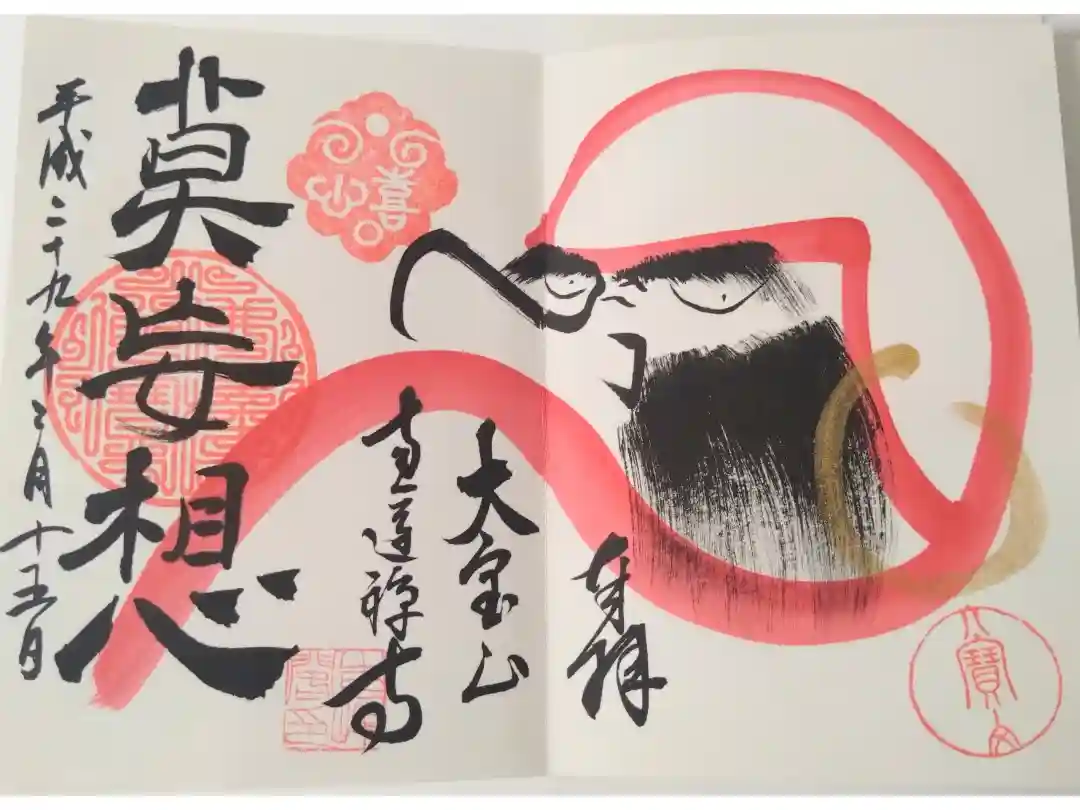 奉拝
大宝山
道禅寺
喜心
莫妄想
平成二十九年三月十五日
寶